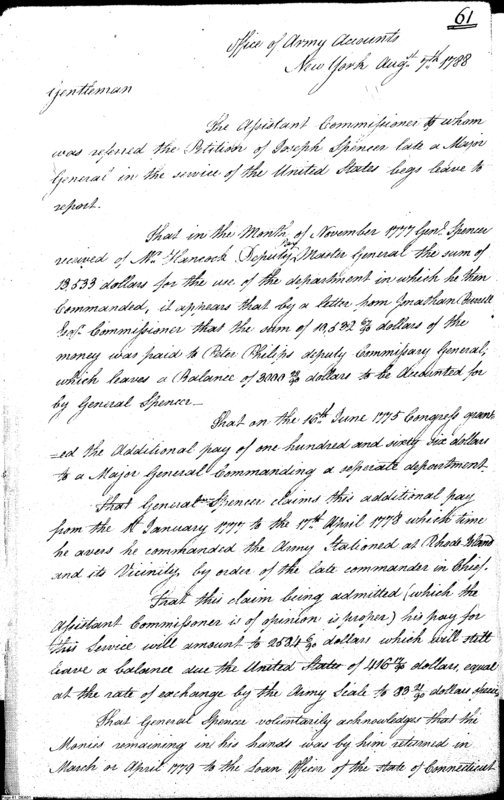 61
Office of Army Accounts
New York Augt. 7th 1788
Gentleman
The Assistant Commissioner to whom
was referred the Petition of Joseph Spencer late a Major
General in the service of the United States begs leave to
report.
That in the Month of November 1777 Genl. Spencer
received of Mr. Hancock Deputy Pay Master General the sum of
13,533 dollars for the use of the department in which he then
Commanded, it appears that by a letter from Jonathan Burrell
Esqr. Commissioner that the sum of 10,532 dollars of the
money was paid to Peter Philips deputy Commissary General;
which leaves a Balance of 3000 dollars to be Accounted for
by General Spencer_
That on the 16th. June 1775 Congress grant-
=ed the Additional pay of one hundred and sixty six dollars
to a Major General Commanding a seperate department.
That General Spencer claims this additional pay
from the 1st January 1777 to the 17th April 1778 which time
he avers he commanded the Army Stationed at Rhode Island
and its Vicinity, by order of the late commander in Chief.
That this claim being admitted (which the
Assistant Commissioner is of opinion is proper) his pay for
this Service will amount to 2584 dollars which will still
leave a balance due the United States of 416 dollars, equal
at the rate of exchange by the Army Scale to 83 dollars specie
That General Spencer voluntarily acknowledges that the
Monies remaining in his hands was by him returned in
March or April 1779 to the Loan Officer of the state of Connecticut